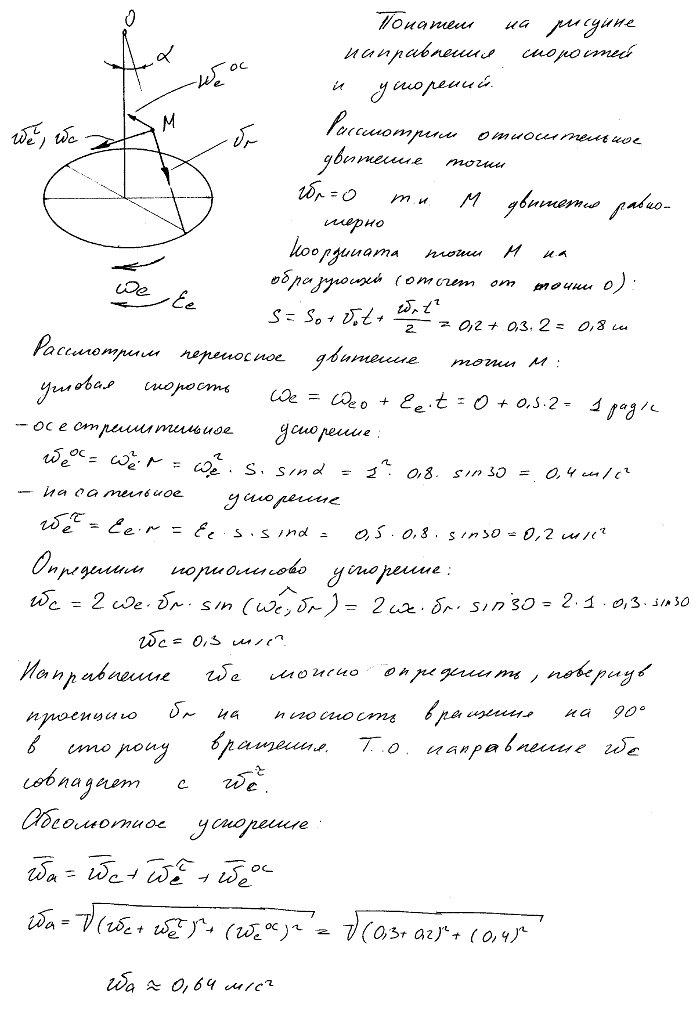 O
α
Wₑᵒᶜ
M
Wₑᵗ, Wc
Vr
ωe
εe
Покажем на рисунке
направления скоростей
и ускорений.
Рассмотрим относительное
движение точки
Wr = 0 т.к. M движется равно-
мерно
Координата точки M на
образующей (отсчет от точки O):
S = S₀ + V₀t + Wr t²/2 = 0,2 + 0,3·2 = 0,8 м
Рассмотрим переносное движение точки M:
угловая скорость ωe = ωe0 + εe·t = 0 + 0,5·2 = 1 рад/с
– осестремительное ускорение:
Wₑᵒᶜ = ωe²·r = ωe²·S·sinα = 1²·0,8·sin30 = 0,4 м/с²
– касательное ускорение
Wₑᵗ = εe·r = εe·s·sinα = 0,5·0,8·sin30 = 0,2 м/с²
Определим кориолисово ускорение:
Wc = 2ωe·Vr·sin(ωe,^Vr) = 2ωe·Vr·sin30 = 2·1·0,3·sin30
Wc = 0,3 м/с².
Направление Wc можно определить, повернув
проекцию Vr на плоскость вращения на 90°
в сторону вращения. Т.о. направление Wc
совпадает с Wₑᵗ.
Абсолютное ускорение:
W̅a = W̅c + W̅ₑᵗ + W̅ₑᵒᶜ
Wa = √((Wc + Wₑᵗ)² + (Wₑᵒᶜ)²) = √((0,3+0,2)² + (0,4)²)
Wa ≈ 0,64 м/с²